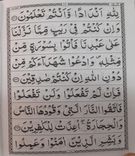 لِلّٰهِ اَنْدَادًا وَّاَنْتُمْ تَعْلَمُوْنَ
وَاِنْ كُنْتُمْ فِیْ رَیْبٍ مِّمَّا نَزَّلْنَا
عَلٰی عَبْدِنَا فَاْتُوْا بِسُوْرَةٍ مِّنْ
مِّثْلِهٖ وَادْعُوْا شُهَدَآءَكُمْ مِّنْ
دُوْنِ اللّٰهِ اِنْ كُنْتُمْ صٰدِقِیْنَ
فَاِنْ لَّمْ تَفْعَلُوْا وَلَنْ تَفْعَلُوْا
فَاتَّقُوا النَّارَ الَّتِیْ وَقُوْدُهَا النَّاسُ
وَالْحِجَارَةُ اُعِدَّتْ لِلْكٰفِرِیْنَ
وَبَشِّرِ الَّذِیْنَ اٰمَنُوْا وَعَمِلُوا